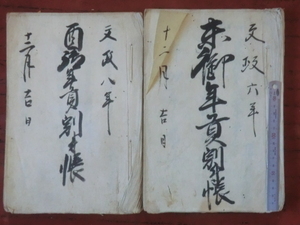 文政六年
未御年貢割帳
十二月吉日
文政八年
酉御年貢割帳
十二月吉日